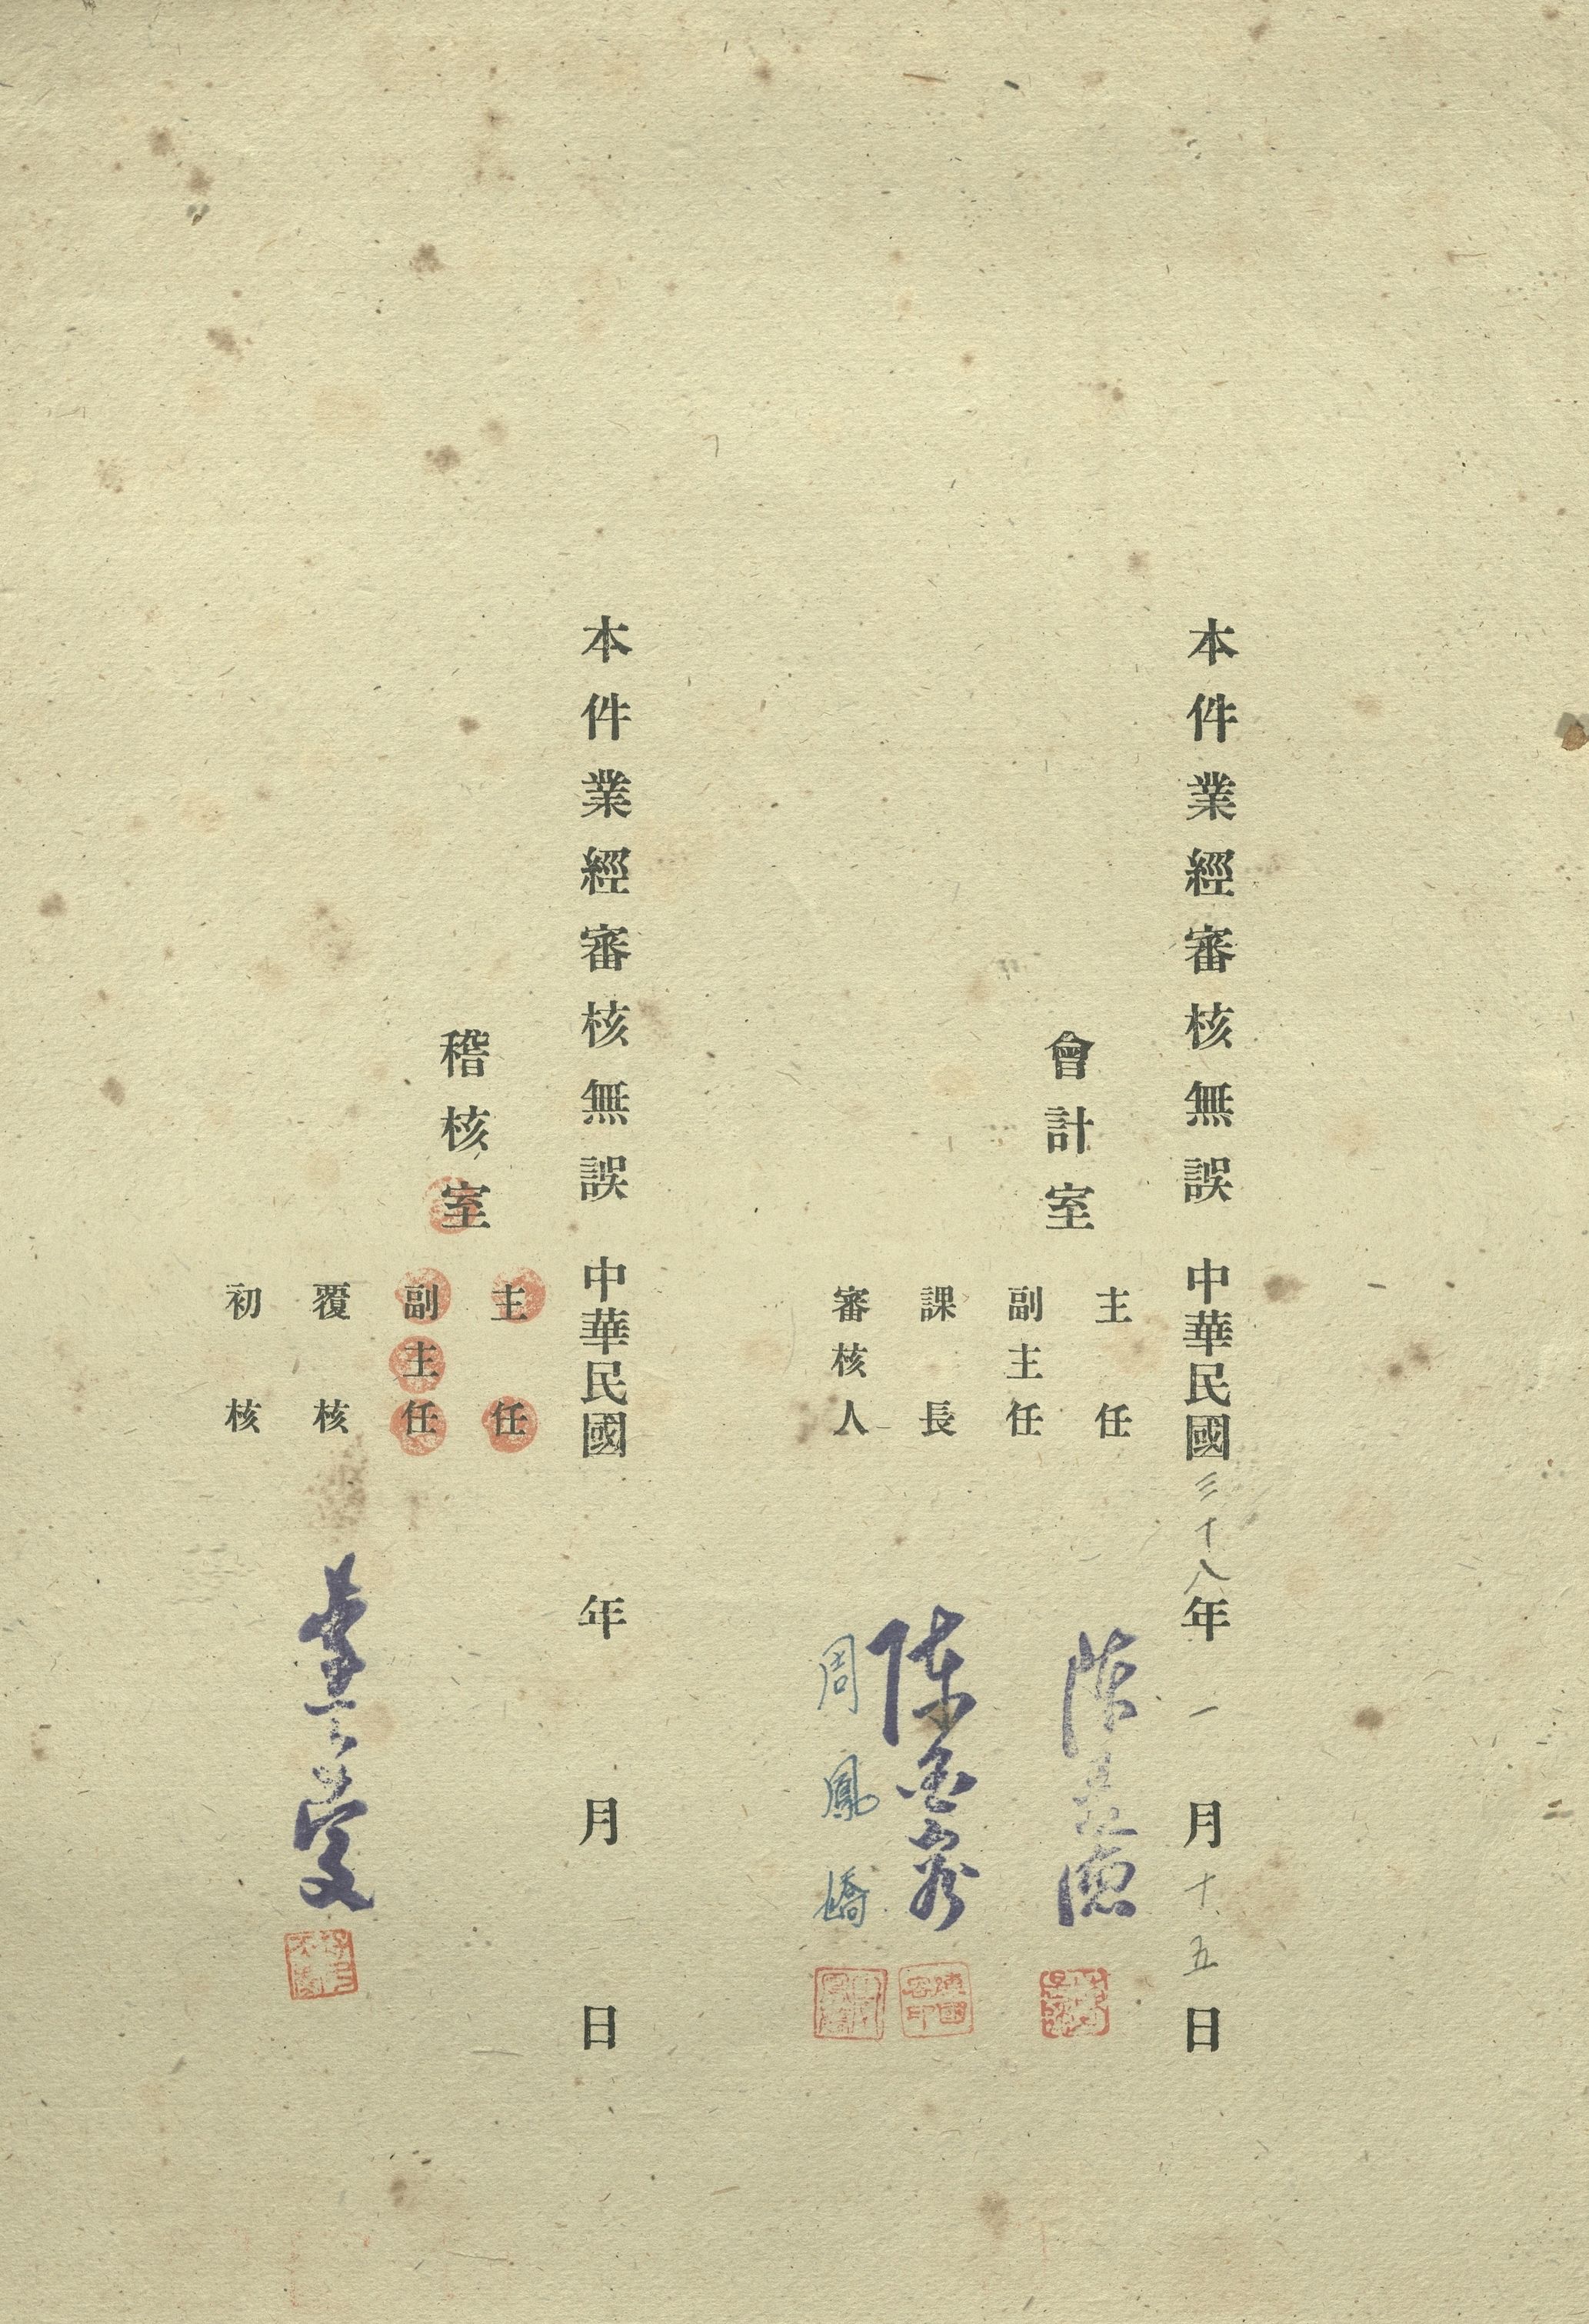 本件業經審核無誤
中華民國三十八年一月十五日
會計室
主任
副主任
課長 陳國容
審核人 周鳳嬌
本件業經審核無誤
中華民國 年 月 日
稽核室
主任
副主任
覆核
初核